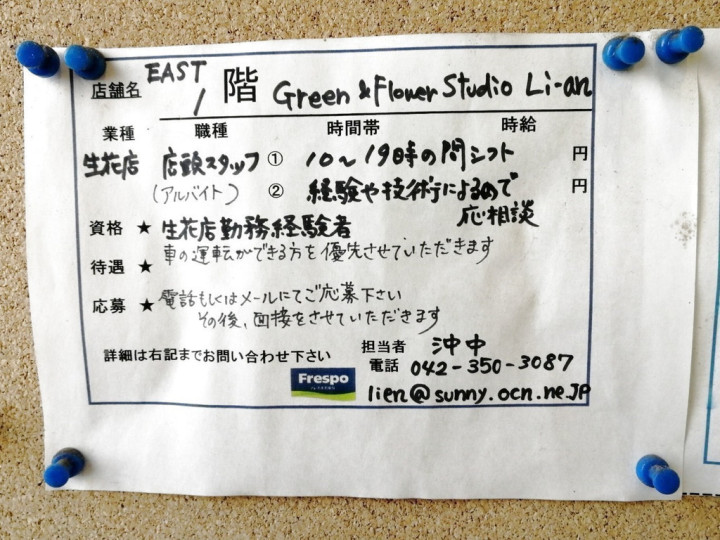 店舗名 EAST 1 階 Green & Flower Studio Li-an
業種 職種 時間帯 時給
生花店 店頭スタッフ ① 10～19時の間シフト 円
(アルバイト) ② 経験や技術によるので 円
応相談
資格 ★ 生花店勤務経験者
車の運転ができる方を優先させていただきます
待遇 ★
応募 ★ 電話もしくはメールにてご応募下さい
その後、面接をさせていただきます
詳細は右記までお問い合わせ下さい 担当者 沖中
電話 042-350-3087
Frespo
lien@sunny.ocn.ne.JP